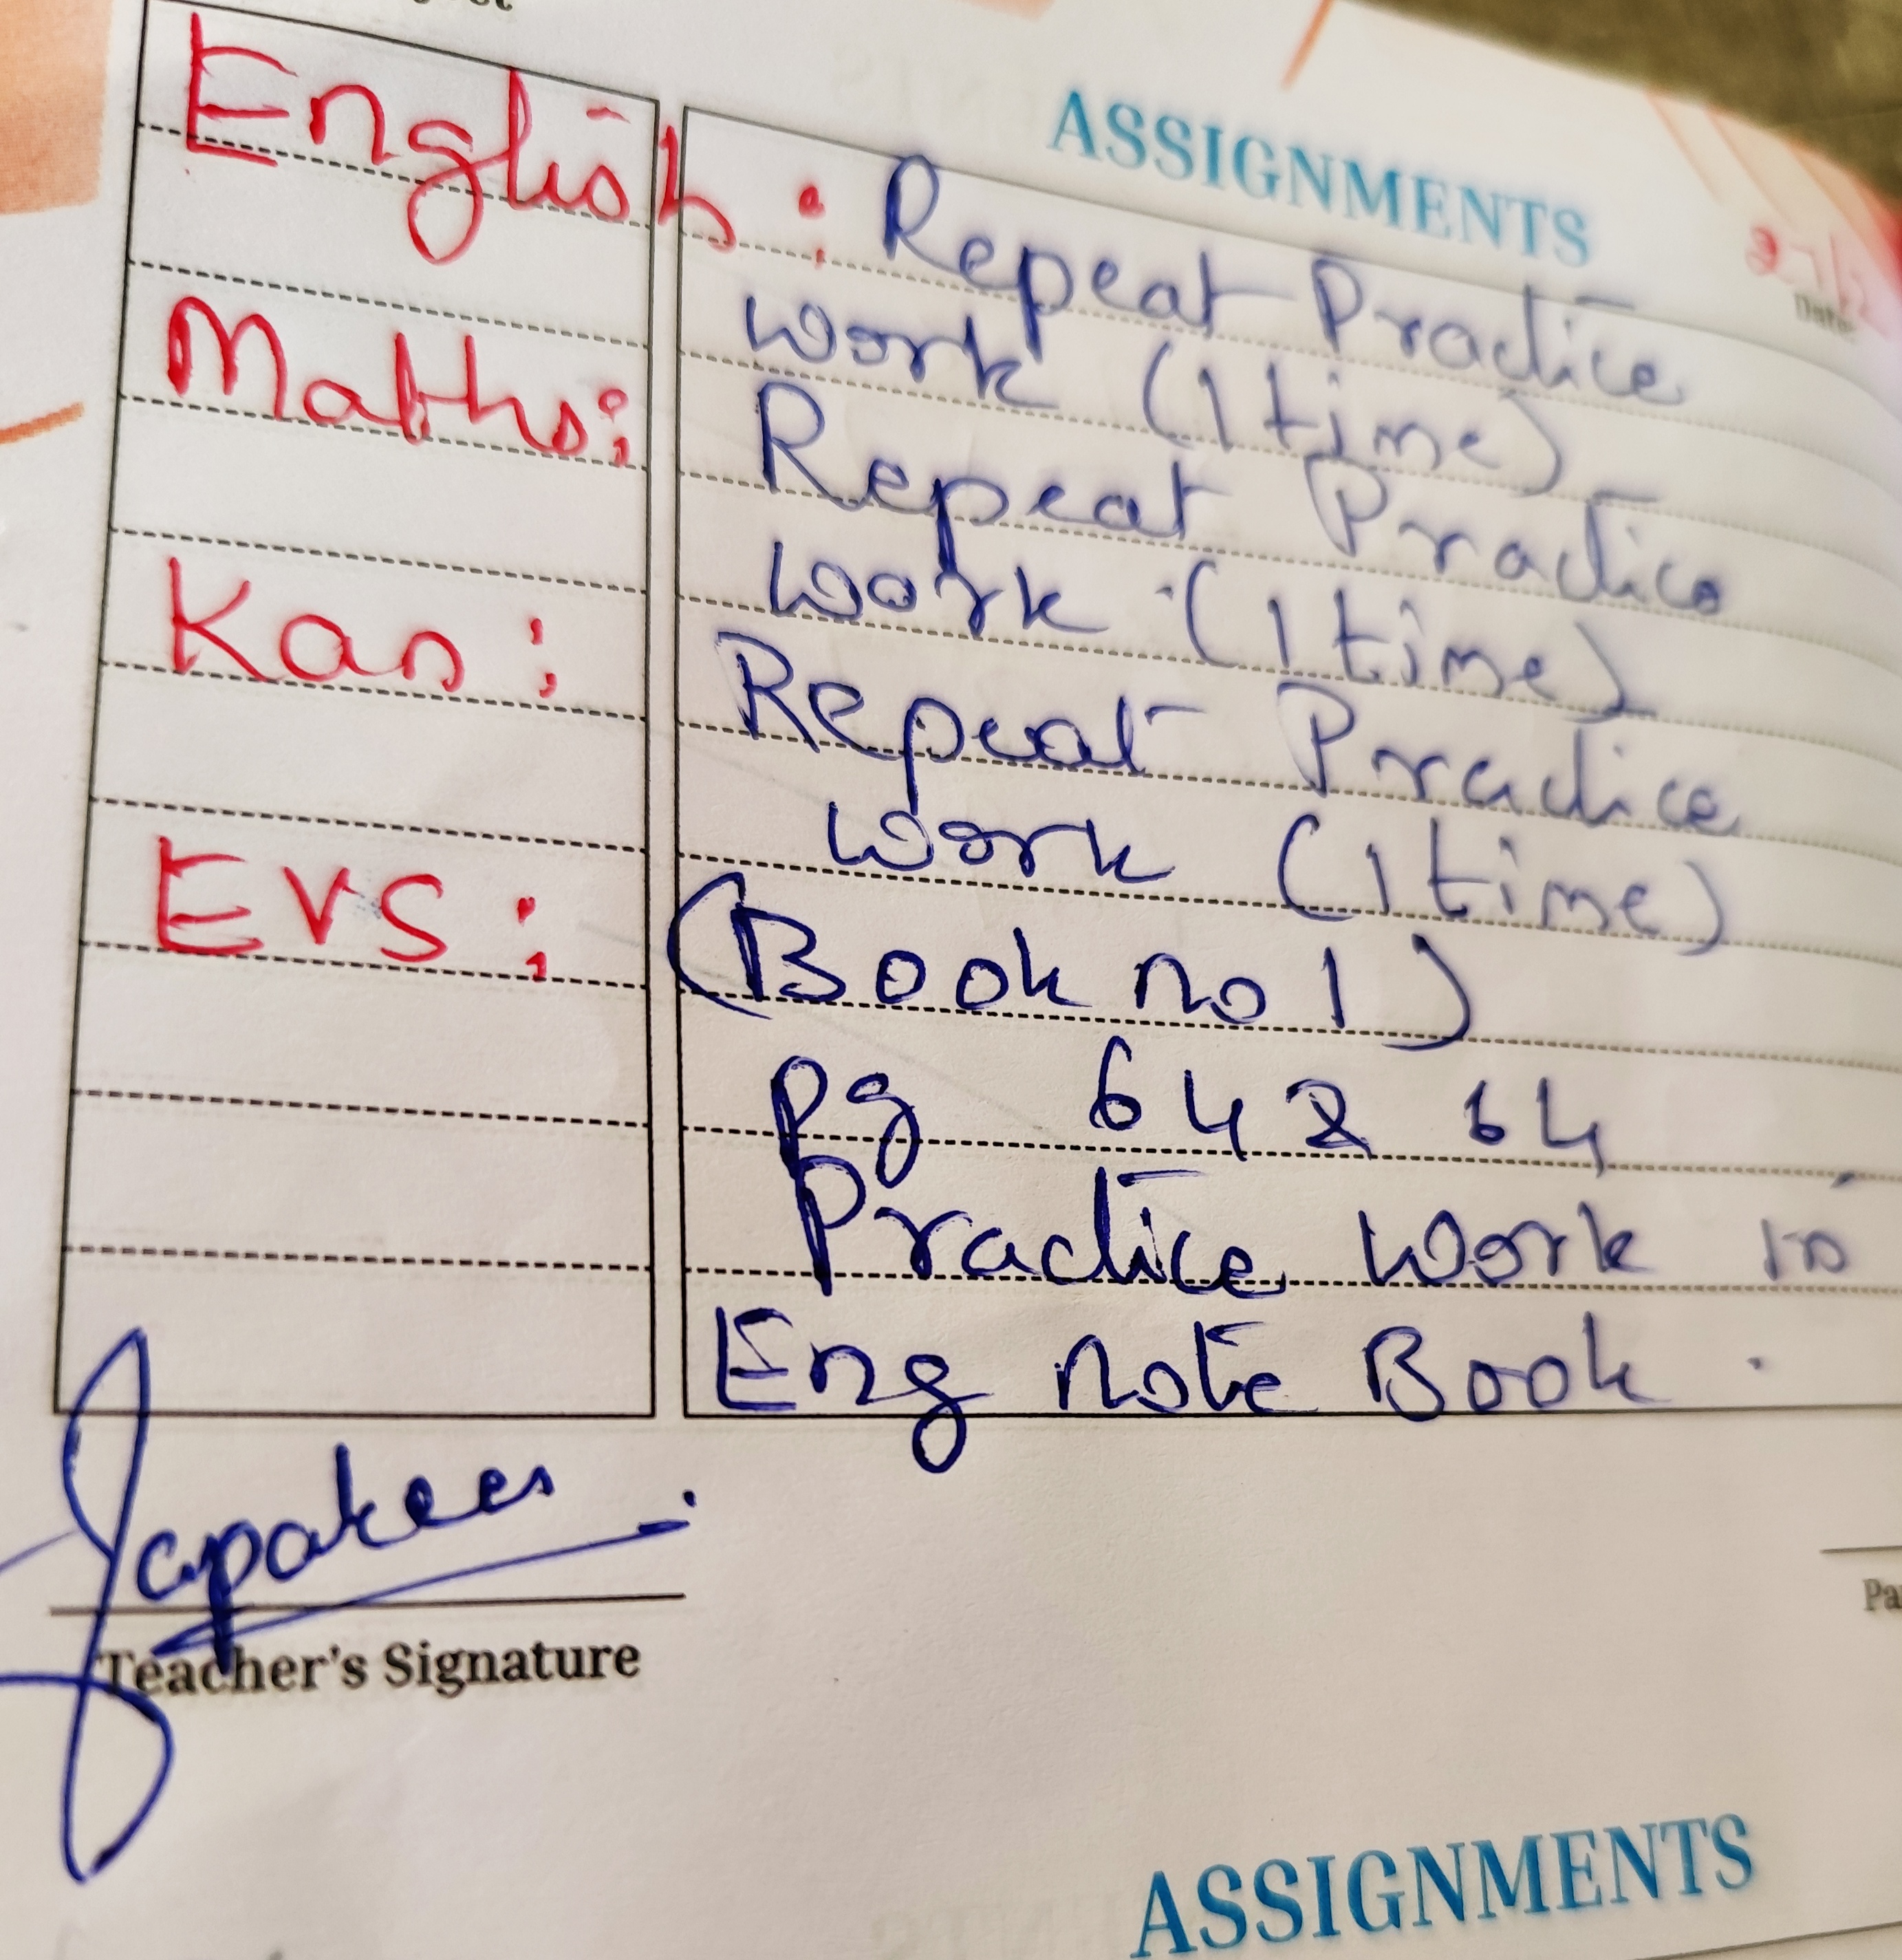 ASSIGNMENTS
Date
English : Repeat Practice
work (1 time)
Maths : Repeat Practice
work (1 time)
Kan : Repeat Practice
work (1 time)
EVS : (Book no 1)
pg 64 & 64
Practice work in
Eng note Book .
Teacher's Signature
ASSIGNMENTS